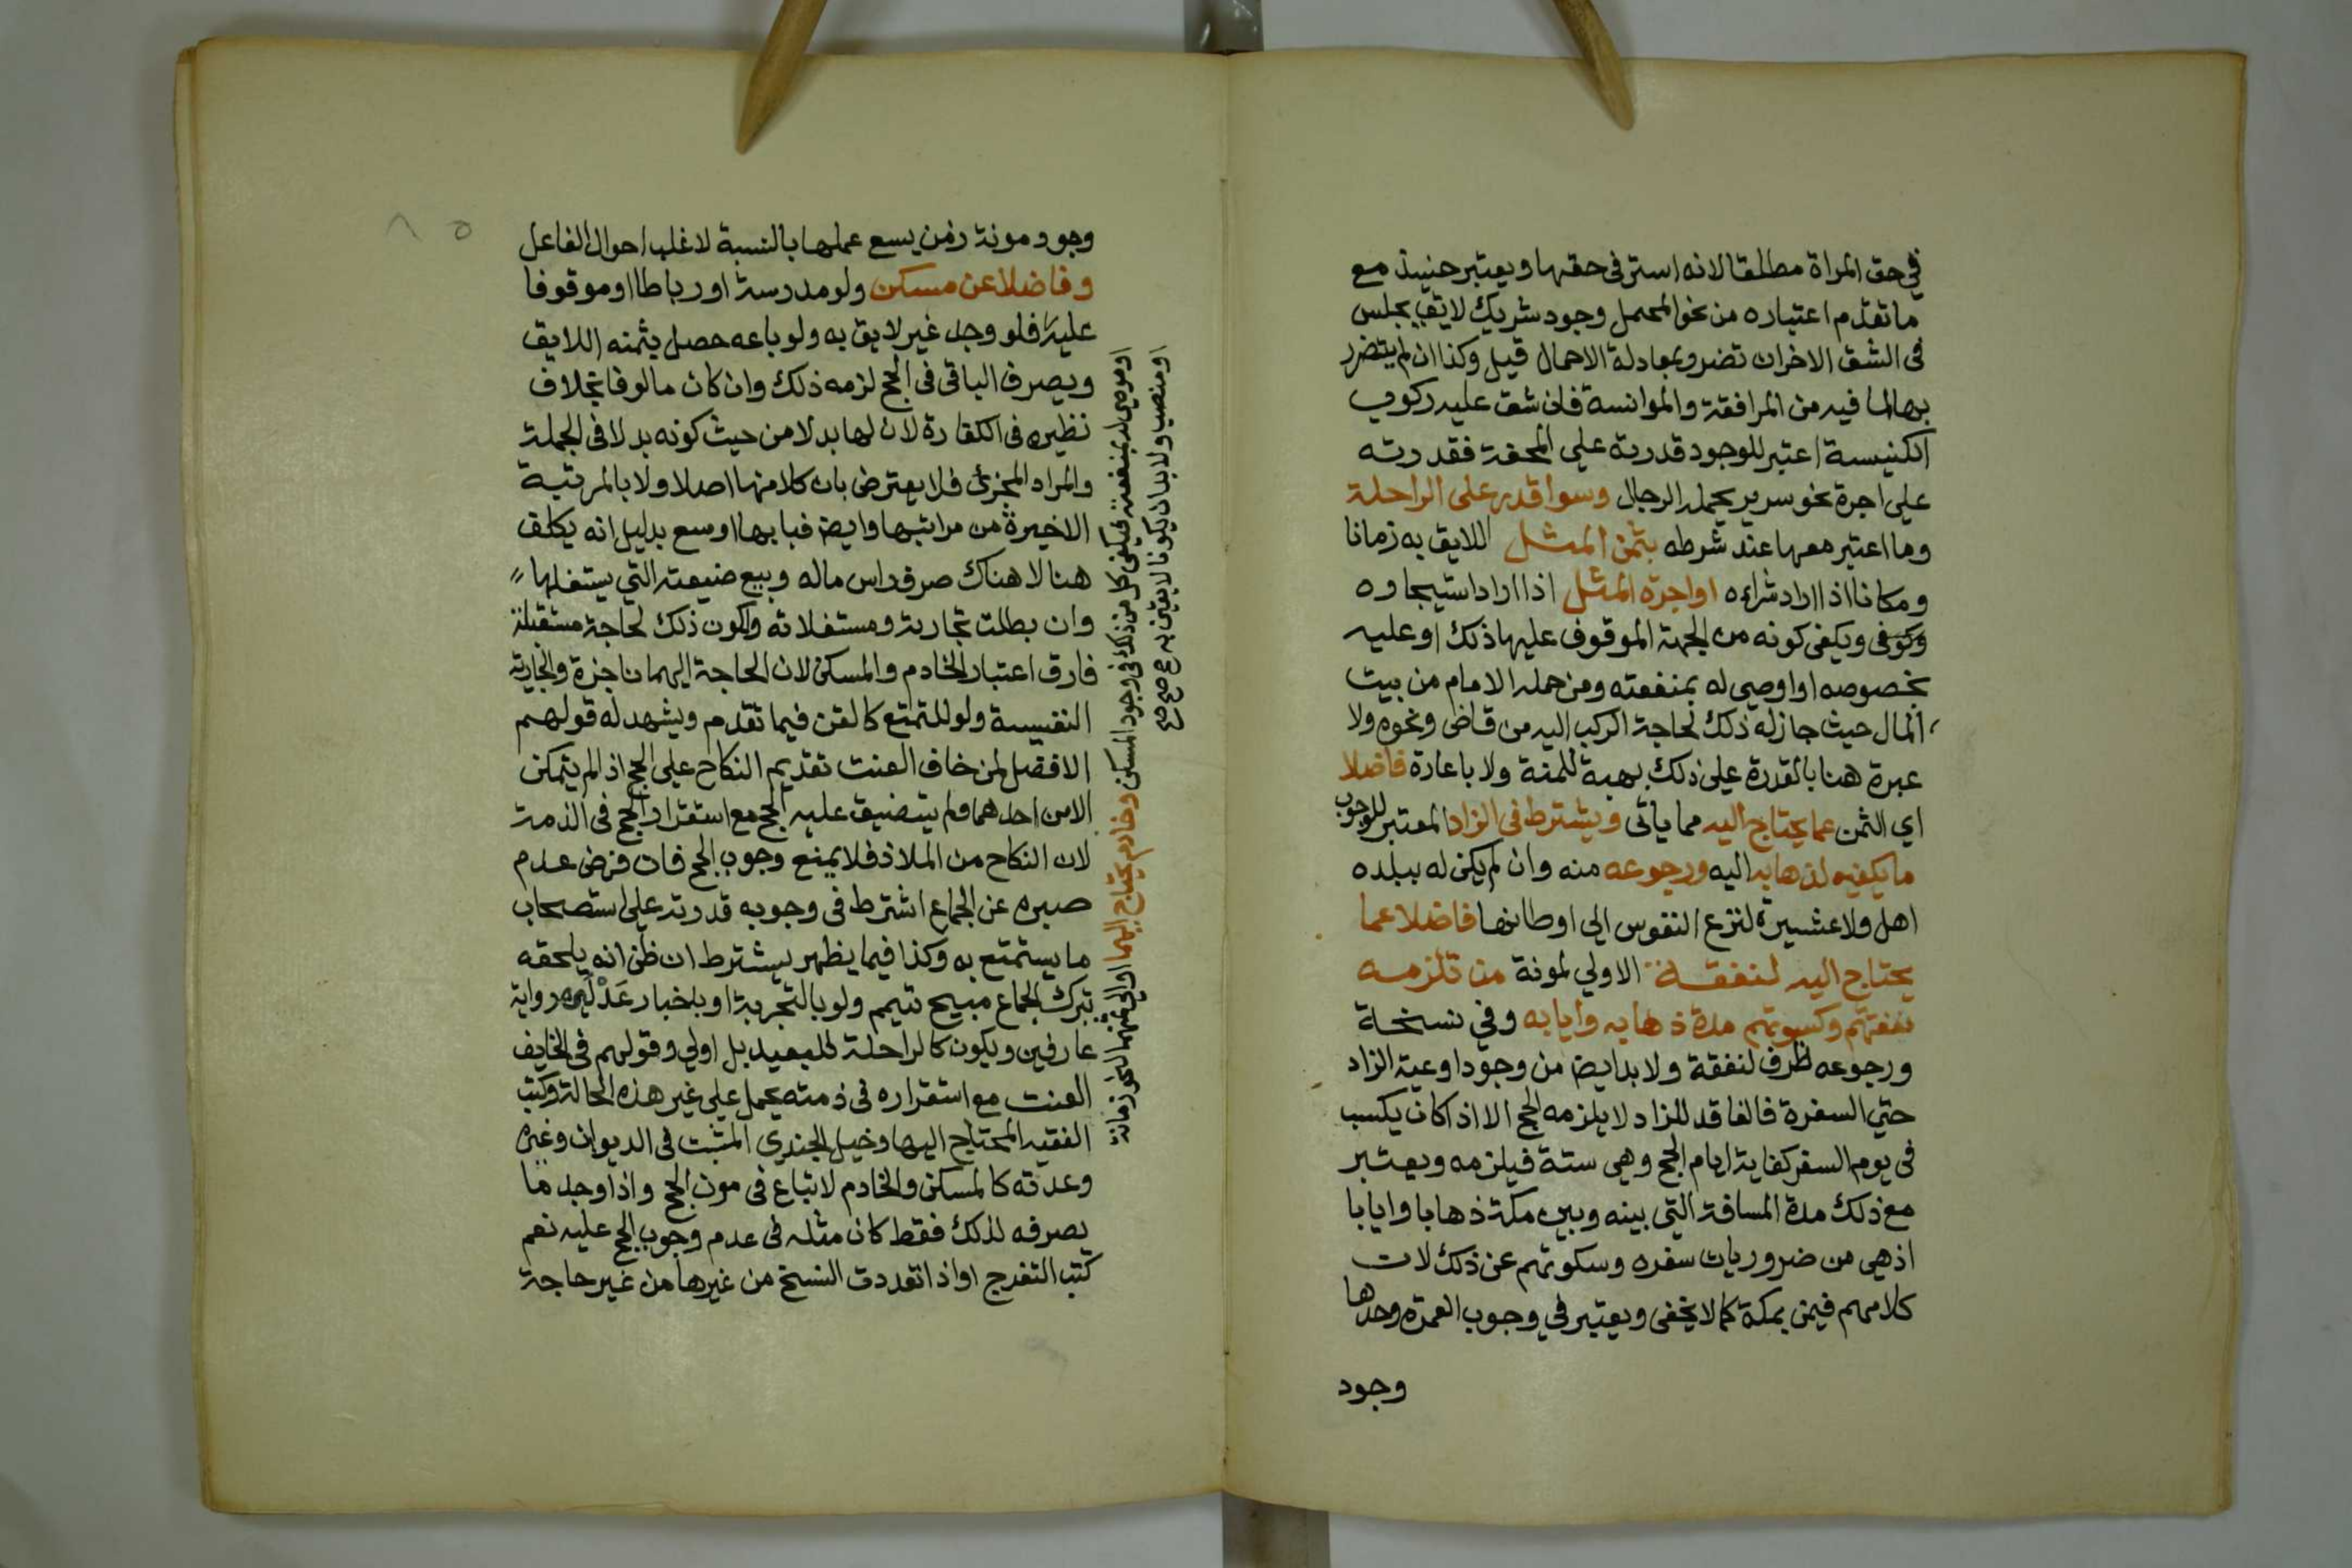 في حق المراة مطلقا لانه استر في حقها ويعتبر حنيئذ مع
ما تقدم اعتباره من نحو المحمل وجود شريك لايق يجلس
في الشق الاخران تضرر بمعادلة الاحمال قيل وكذا ان لم يتضرر
بها لما فيه من المرافقة والموانسة فان شق عليه ركوب
الكنيسة اعتبر للوجود قدرته علي المحفة فقدرته
علي اجرة نحو سرير يحمله الرجال وسوا قدر على الراحلة
وما اعتبر معها عند شرطه بثمن المثل اللايق به زمانا
ومكانا اذا اراد شراءه او اجرة المثل اذا اراد استيجاره
ويكفى كونه من الجهة الموقوف عليها ذلك او عليه
بخصوصه او اوصي له بمنفعته ومن حمله الامام من بيت
المال حيث جاز له ذلك لحاجة الركب اليه من قاض ونحوه ولا
عبرة هنا بالقدرة علي ذلك بهبة للمنة ولا باعارة فاضلا
اي الثمن عما يحتاج اليه مما ياتى ويشترط في الزاد المعتبر للوجوب
ما يكفيه لذهابه اليه ورجوعه منه وان لم يكن له ببلده
اهل ولا عشيرة لنزع النفوس الي اوطانها فاضلا عما
يحتاج اليه لنفقة الاولي لمونة من تلزمه
نفقتهم وكسوتهم مدة ذهابه وايابه وفي نسخة
ورجوعه ظرف لنفقة ولا بد ايضا من وجود اوعية الزاد
حتي السفرة فالفاقد للزاد لا يلزمه الحج الا اذا كان يكسب
في يوم السفر كفاية ايام الحج وهي ستة فيلزمه ويعتبر
مع ذلك مدة المسافة التي بينه وبين مكة ذهابا وايابا
اذ هي من ضروريات سفره وسكوتهم عن ذلك لان
كلامهم فيمن بمكة كما لا يخفى ويعتبر في وجوب العمرة وحدها
وجود
وجود مونة زمن يسع عملها بالنسبة لاغلب احوال الفاعل
وفاضلا عن مسكن ولو مدرسة او رباطا او موقوفا
عليه فلو وجد غير لايق به ولو باعه حصل بثمنه اللايق
ويصرف الباقى في الحج لزمه ذلك وان كان مالوفا بخلاف
نظيره في الكفارة لان لها بدلا من حيث كونه بدلا في الجملة
والمراد المجزئ فلا يعترض بان كلا منها اصلا ولا بالمرتبة
الاخيرة من مراتبها وايضا فبابها اوسع بدليل انه يكلف
هنا لا هناك صرف راس ماله وبيع ضيعته التي يستغلها
وان بطلت تجارته ومستغلاته ولكون ذلك لحاجة مستقبلة
فارق اعتبار الخادم والمسكن لان الحاجة اليهما ناجزة والجارية
النفيسة ولو للتمتع كالقن فيما تقدم ويشهد له قولهم
الافضل لمن خاف العنت تقديم النكاح علي الحج اذا لم يتمكن
الا من احدهما ولم يتضيق عليه الحج مع استقرار الحج في الذمة
لان النكاح من الملاذ فلا يمنع وجوب الحج فان فرض عدم
صبره عن الجماع اشترط في وجوبه قدرته علي استصحاب
ما يستمتع به وكذا فيما يظهر يشترط ان ظن انه يلحقه
بترك الجماع مبيح تيمم ولو بالتجربة او باخبار عدلي رواية
عارفين ويكون كالراحلة للبعيد بل اولي وقولهم في الخايف
العنت مع استقراره في ذمته يحمل علي غير هذه الحالة وكتب
الفقيه المحتاج اليها وخيل الجندي المثبت في الديوان وغيره
وعدته كالمسكن والخادم لا تباع في مون الحج واذا وجد ما
يصرفه لذلك فقط كان مثله في عدم وجوب الحج عليه نعم
كتب التفرج او اذا تعددت النسخ من غيرها من غير حاجة
او موصي له بمنفعته فيكفي كل من ذلك في وجود المسكن وخادم يحتاج اليهما او الي ثمنهما لنحو زمانة
او منصب ولا بد ان يكونا لايقين به صح صح